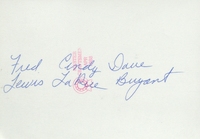 Fred Cindy Dave
Lewis LaRue Bryant